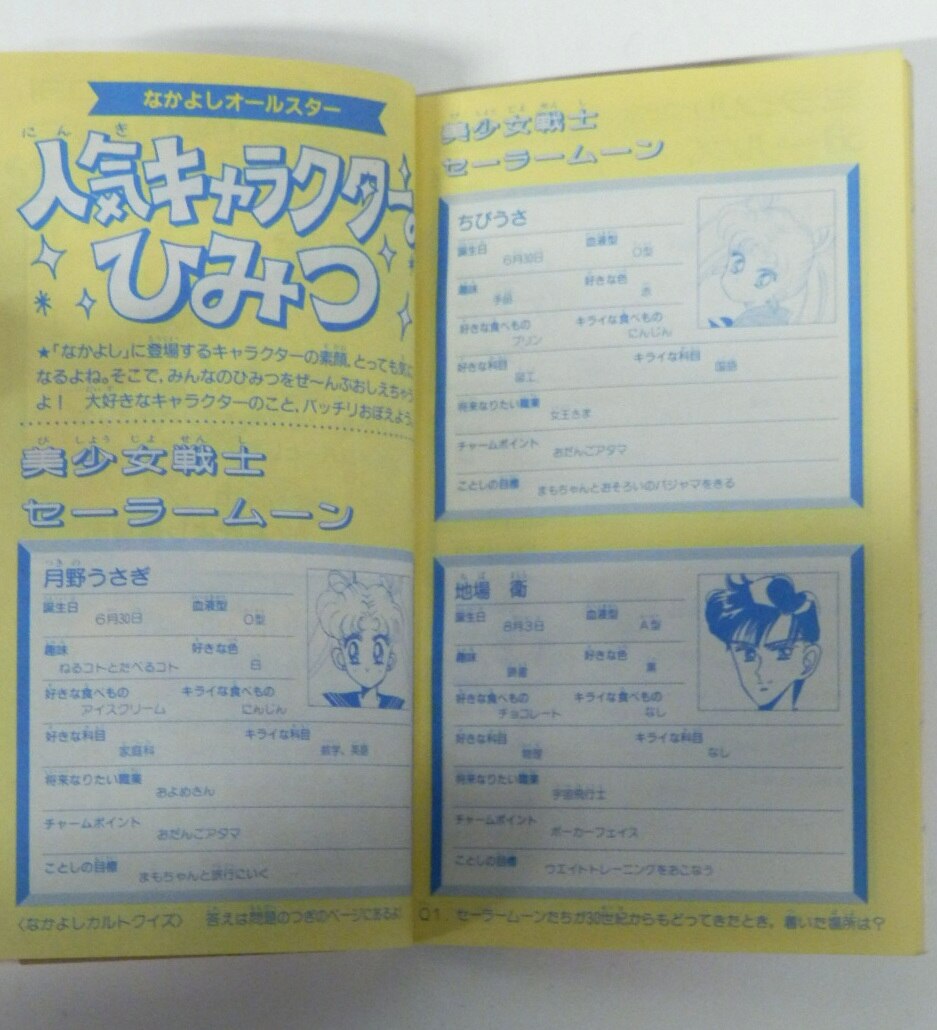 なかよしオールスター
人気キャラクターの
ひみつ
★「なかよし」に登場するキャラクターの素顔、とっても気に
なるよね。そこで、みんなのひみつをぜ〜んぶおしえちゃう
よ！ 大好きなキャラクターのこと、バッチリおぼえよう。
美少女戦士
セーラームーン
月野うさぎ
誕生日 血液型
6月30日 O型
趣味 好きな色
ねるコトとたべるコト 白
好きな食べもの キライな食べもの
アイスクリーム にんじん
好きな科目 キライな科目
家庭科 数学、英語
将来なりたい職業
およめさん
チャームポイント
おだんごアタマ
ことしの目標
まもちゃんと旅行にいく
〈なかよしカルトクイズ〉 答えは問題のつぎのページにあるよ!
美少女戦士
セーラームーン
ちびうさ
誕生日 血液型
6月30日 O型
趣味 好きな色
手品 赤
好きな食べもの キライな食べもの
プリン にんじん
好きな科目 キライな科目
図工 国語
将来なりたい職業
女王さま
チャームポイント
おだんごアタマ
ことしの目標
まもちゃんとおそろいのパジャマをきる
地場 衛
誕生日 血液型
8月3日 A型
趣味 好きな色
読書 黒
好きな食べもの キライな食べもの
チョコレート なし
好きな科目 キライな科目
物理 なし
将来なりたい職業
宇宙飛行士
チャームポイント
ポーカーフェイス
ことしの目標
ウエイトトレーニングをおこなう
Q1 セーラームーンたちが30世紀からもどってきたとき、着いた場所は？